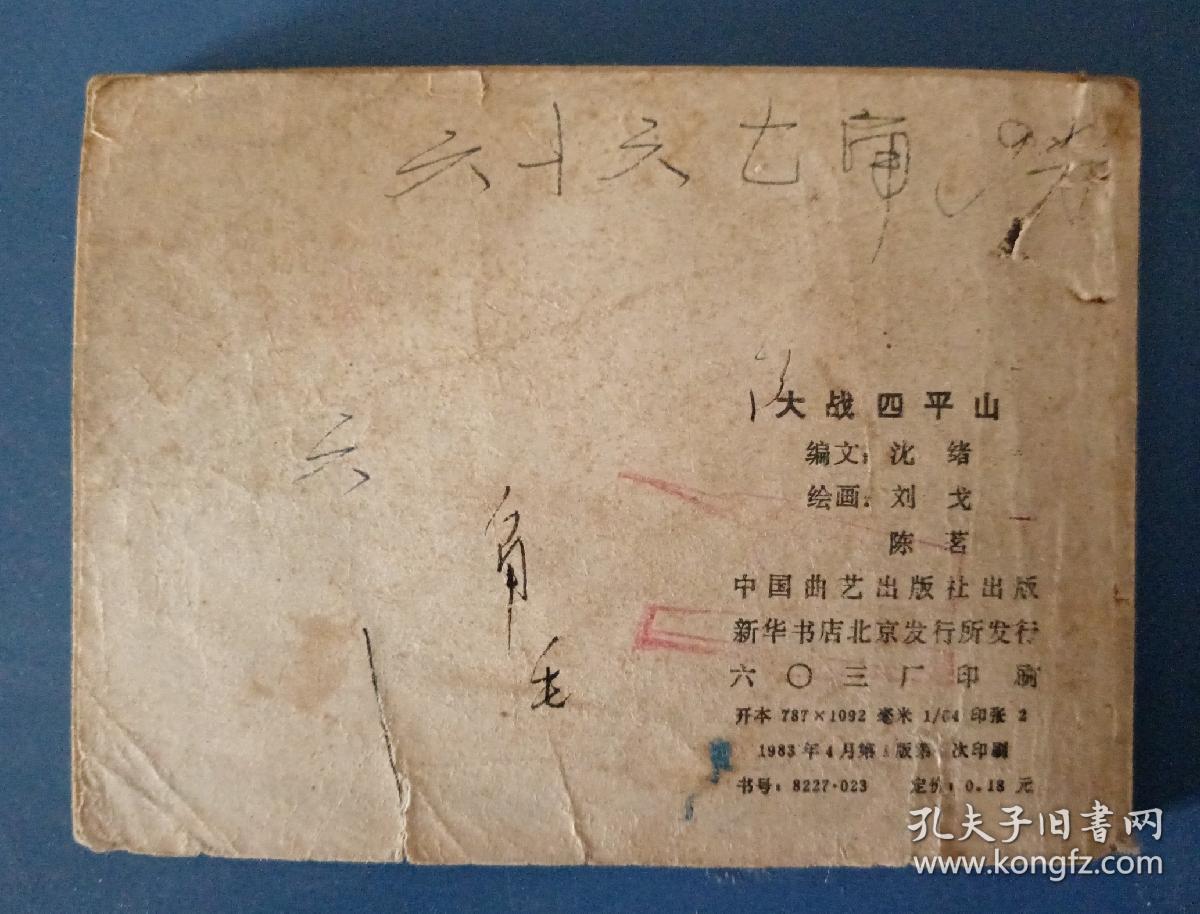 六十六
大战四平山
编文：沈 绪
绘画：刘 戈
陈 茗
中国曲艺出版社出版
新华书店北京发行所发行
六〇三厂印刷
开本 787×1092 毫米 1/64 印张 2
1983年4月第 版第 次印刷
书号：8227·023 定价：0.18 元
六
角
毛
孔夫子旧書网
www.kongfz.com